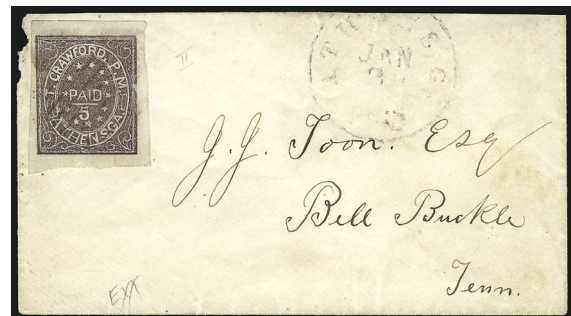 T. CRAWFORD, P.M.
PAID
5
ATHENS GA.
ATHENS GA
JAN
II
J. J. Toon. Esq
Bell Buckle
Tenn.